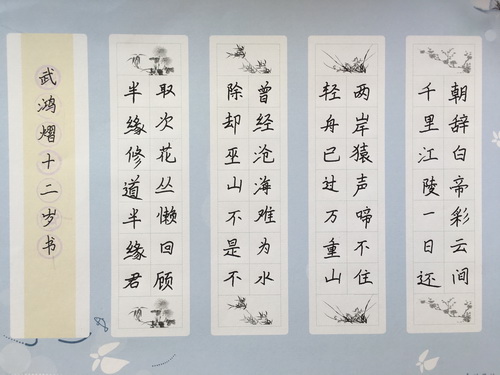 朝辞白帝彩云间
千里江陵一日还
两岸猿声啼不住
轻舟已过万重山
曾经沧海难为水
除却巫山不是不
取次花丛懒回顾
半缘修道半缘君
武鸿熠十二岁书